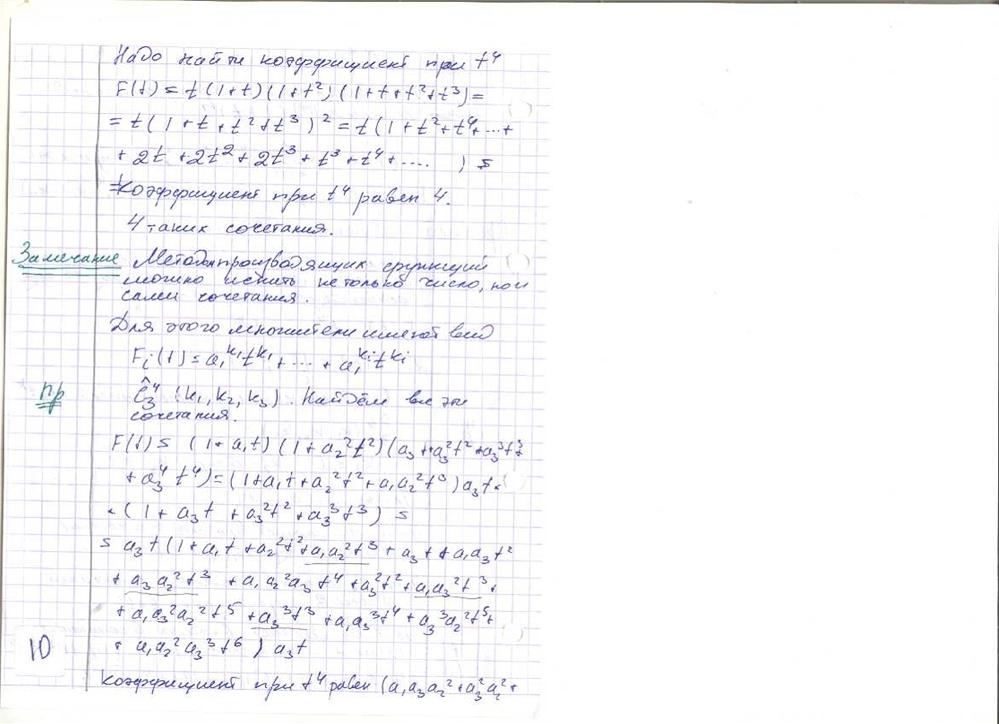 Надо найти коэффициент при t⁴
F(t) = t(1+t)(1+t²)(1+t+t²+t³) =
= t(1+t+t²+t³)² = t(1+t²+t⁴+...+
+ 2t + 2t² + 2t³ + t³ + t⁴ + .... ) =
=Коэффициент при t⁴ равен 4.
4 таких сочетания.
Замечание Методом производящих функций
можно искать не только число, но и
сами сочетания.
Для этого множители имеют вид
Fᵢ(t) = aᵢᵏ¹tᵏ¹ + ... + aᵢᵏⁱtᵏⁱ
пр Ĉ₃⁴ (k₁, k₂, k₃). Найдём все эти
сочетания.
F(t) = (1+a₁t)(1+a₂²t²)(a₃ + a₃²t² + a₃³t³
+ a₃⁴t⁴) = (1+a₁t+a₂²t²+a₁a₂²t³)a₃t·
·(1 + a₃t + a₃²t² + a₃³t³) =
= a₃t(1+a₁t+a₂²t²+a₁a₂²t³+a₃t+a₁a₃t²
+ a₃a₂²t³ + a₁a₂²a₃t⁴ + a₃²t² + a₁a₃²t³ +
+ a₁a₃²a₂²t⁵ + a₃³t³ + a₁a₃³t⁴ + a₃³a₂²t⁵+
+ a₁a₂²a₃³t⁶) a₃t
10
Коэффициент при t⁴ равен (a₁a₃a₂²+a₃²a₂²+